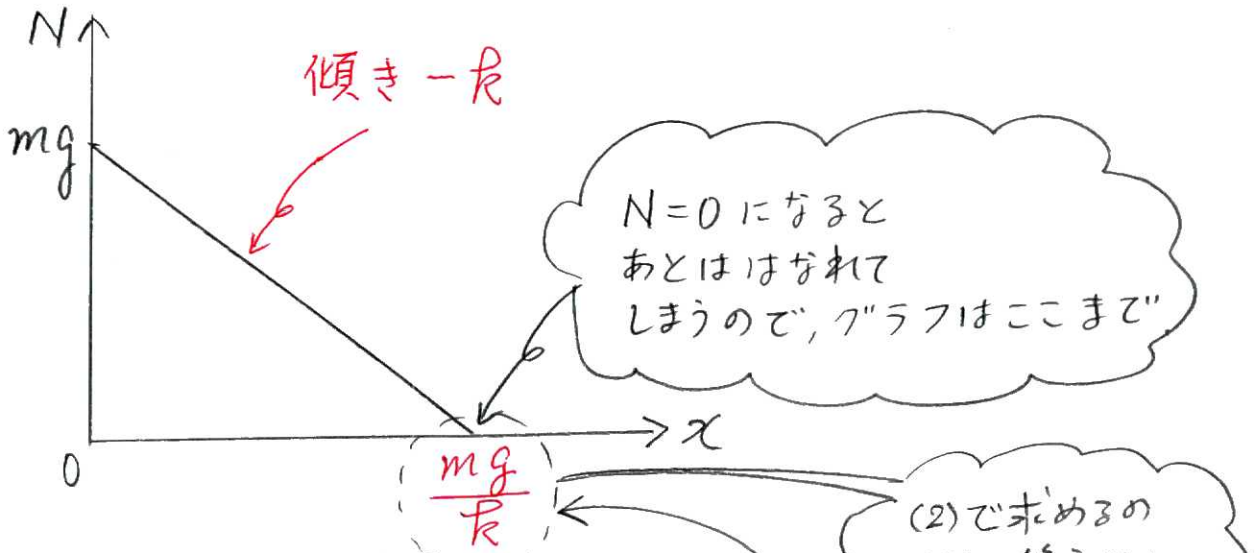 N
傾き -k
mg
N=0 になると
あとははなれて
しまうので,グラフはここまで
x
0
mg
k
(2)で求めるの